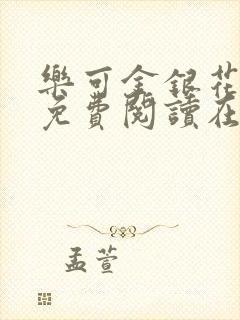 樂可金銀花
免費閱讀在
孟萱